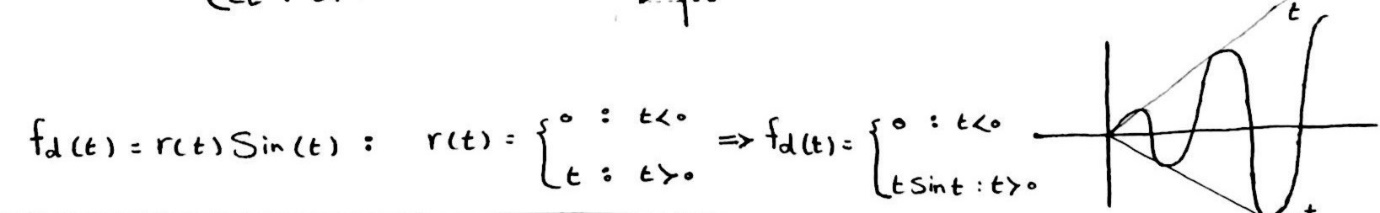 t
f_d(t) = r(t) Sin(t) : r(t) = { 0 : t<0 ; t : t>0 => f_d(t) = { 0 : t<0 ; t Sin t : t>0
t